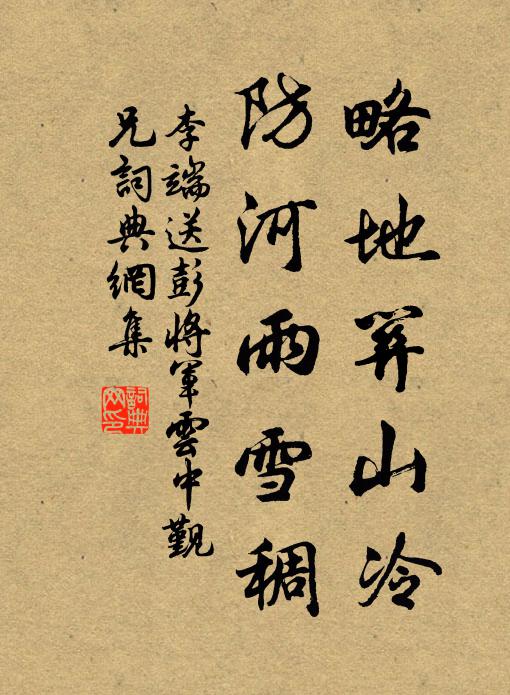 略地關山冷
防河雨雪稠
李端送彭将軍雲中覲
兄詞典網集
詞典
网印